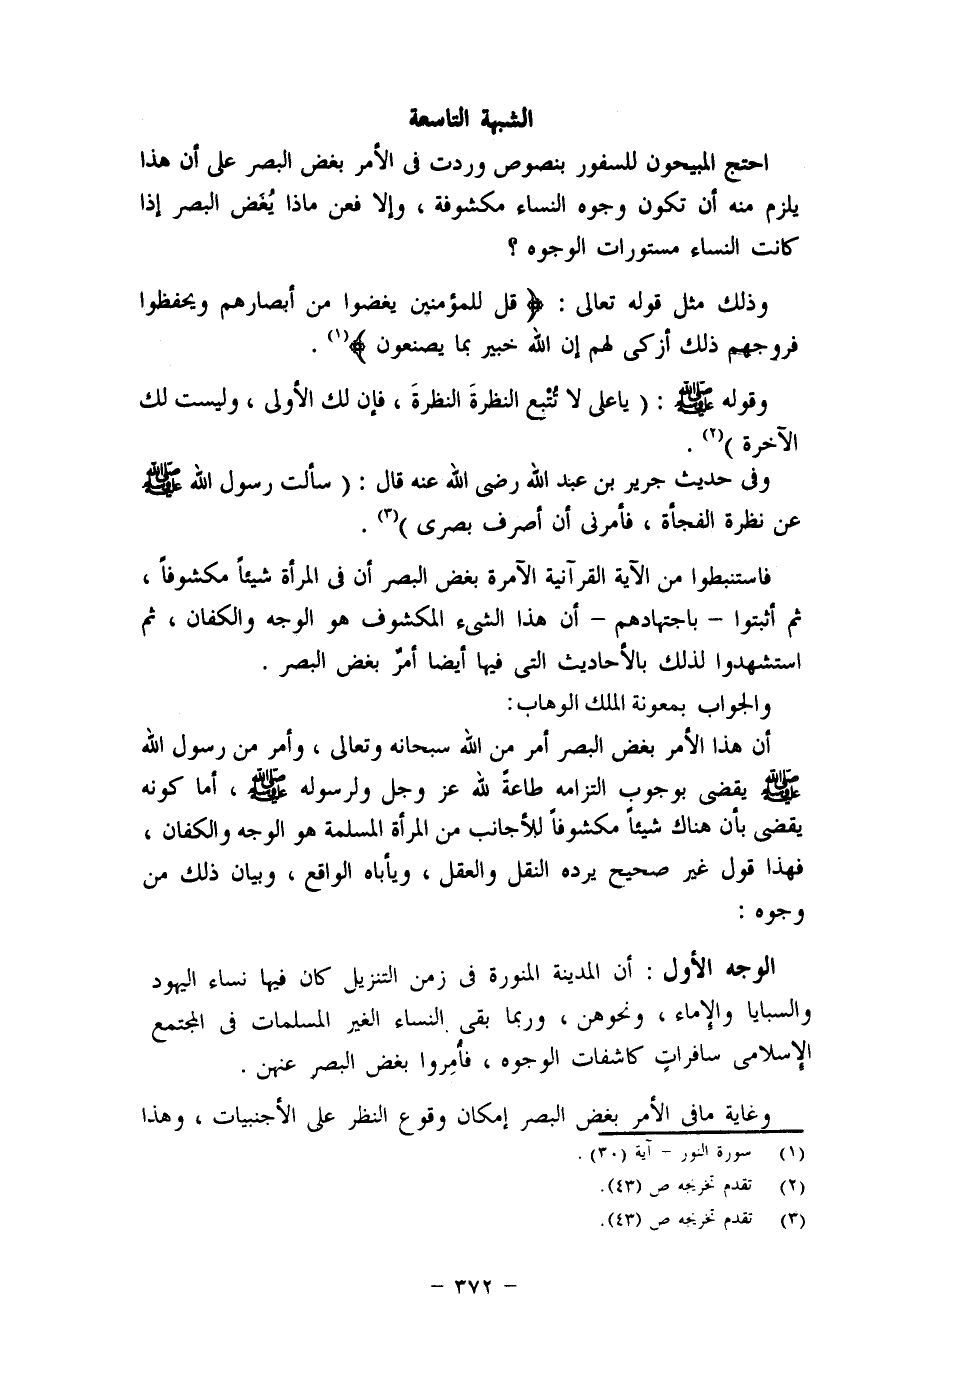 الشبهة التاسعة
احتج المبيحون للسفور بنصوص وردت فى الأمر بغض البصر على أن هذا
يلزم منه أن تكون وجوه النساء مكشوفة ، وإلا فعن ماذا يُغَض البصر إذا
كانت النساء مستورات الوجوه ؟
وذلك مثل قوله تعالى : ﴿ قل للمؤمنين يغضوا من أبصارهم ويحفظوا
فروجهم ذلك أزكى لهم إن الله خبير بما يصنعون ﴾(١) .
وقوله ﷺ : ( ياعلى لا تُتْبِع النظرةَ النظرةَ ، فإن لك الأولى ، وليست لك
الآخرة )(٢) .
وفى حديث جرير بن عبد الله رضى الله عنه قال : ( سألت رسول الله ﷺ
عن نظرة الفجأة ، فأمرنى أن أصرف بصرى )(٣) .
فاستنبطوا من الآية القرآنية الآمرة بغض البصر أن فى المرأة شيئاً مكشوفاً ،
ثم أثبتوا – باجتهادهم – أن هذا الشىء المكشوف هو الوجه والكفان ، ثم
استشهدوا لذلك بالأحاديث التى فيها أيضا أمرٌ بغض البصر .
والجواب بمعونة الملك الوهاب:
أن هذا الأمر بغض البصر أمر من الله سبحانه وتعالى ، وأمر من رسول الله
ﷺ يقضى بوجوب التزامه طاعةً لله عز وجل ولرسوله ﷺ ، أما كونه
يقضى بأن هناك شيئاً مكشوفاً للأجانب من المرأة المسلمة هو الوجه والكفان ،
فهذا قول غير صحيح يرده النقل والعقل ، ويأباه الواقع ، وبيان ذلك من
وجوه :
الوجه الأول : أن المدينة المنورة فى زمن التنزيل كان فيها نساء اليهود
والسبايا والإماء ، ونحوهن ، وربما بقى النساء الغير المسلمات فى المجتمع
الإسلامى سافراتٍ كاشفات الوجوه ، فأُمِروا بغض البصر عنهن .
وغاية مافى الأمر بغض البصر إمكان وقوع النظر على الأجنبيات ، وهذا
(١) سورة النور – آية (٣٠) .
(٢) تقدم تخريجه ص (٤٣).
(٣) تقدم تخريجه ص (٤٣).
– ٣٧٢ –